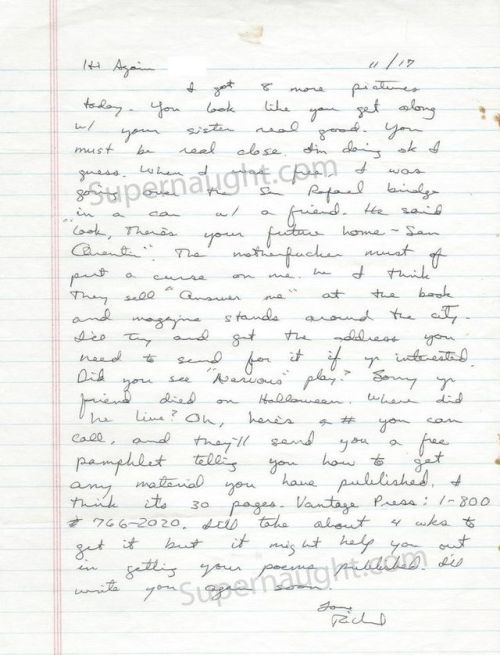 Hi Again 11/17
I got 8 more pictures
today. You look like you get along
w/ your sister real good. You
must be real close. Im doing ok I
guess. When I was free I was
going over the San Rafael bridge
in a car w/ a friend. He said
"Look, Theres your future home - San
Quentin". The motherfucker must of
put a curse on me. I think
They sell "Answer me" at the book
and magazine stands around the city.
I'll Try and get the address you
need to send for it if yr interested.
Did you see "Nervous" play? Sorry yr
friend died on Halloween. Where did
he live? Oh, here's a # you can
call, and they'll send you a free
pamphlet telling you how to get
any material you have published. I
think its 30 pages. Vantage Press: 1-800
# 766-2020. It'll take about 4 wks to
get it but it might help you out
in getting your poems published. I'll
write you again soon.
Love
Richard
Supernaught.com
Supernaught.com